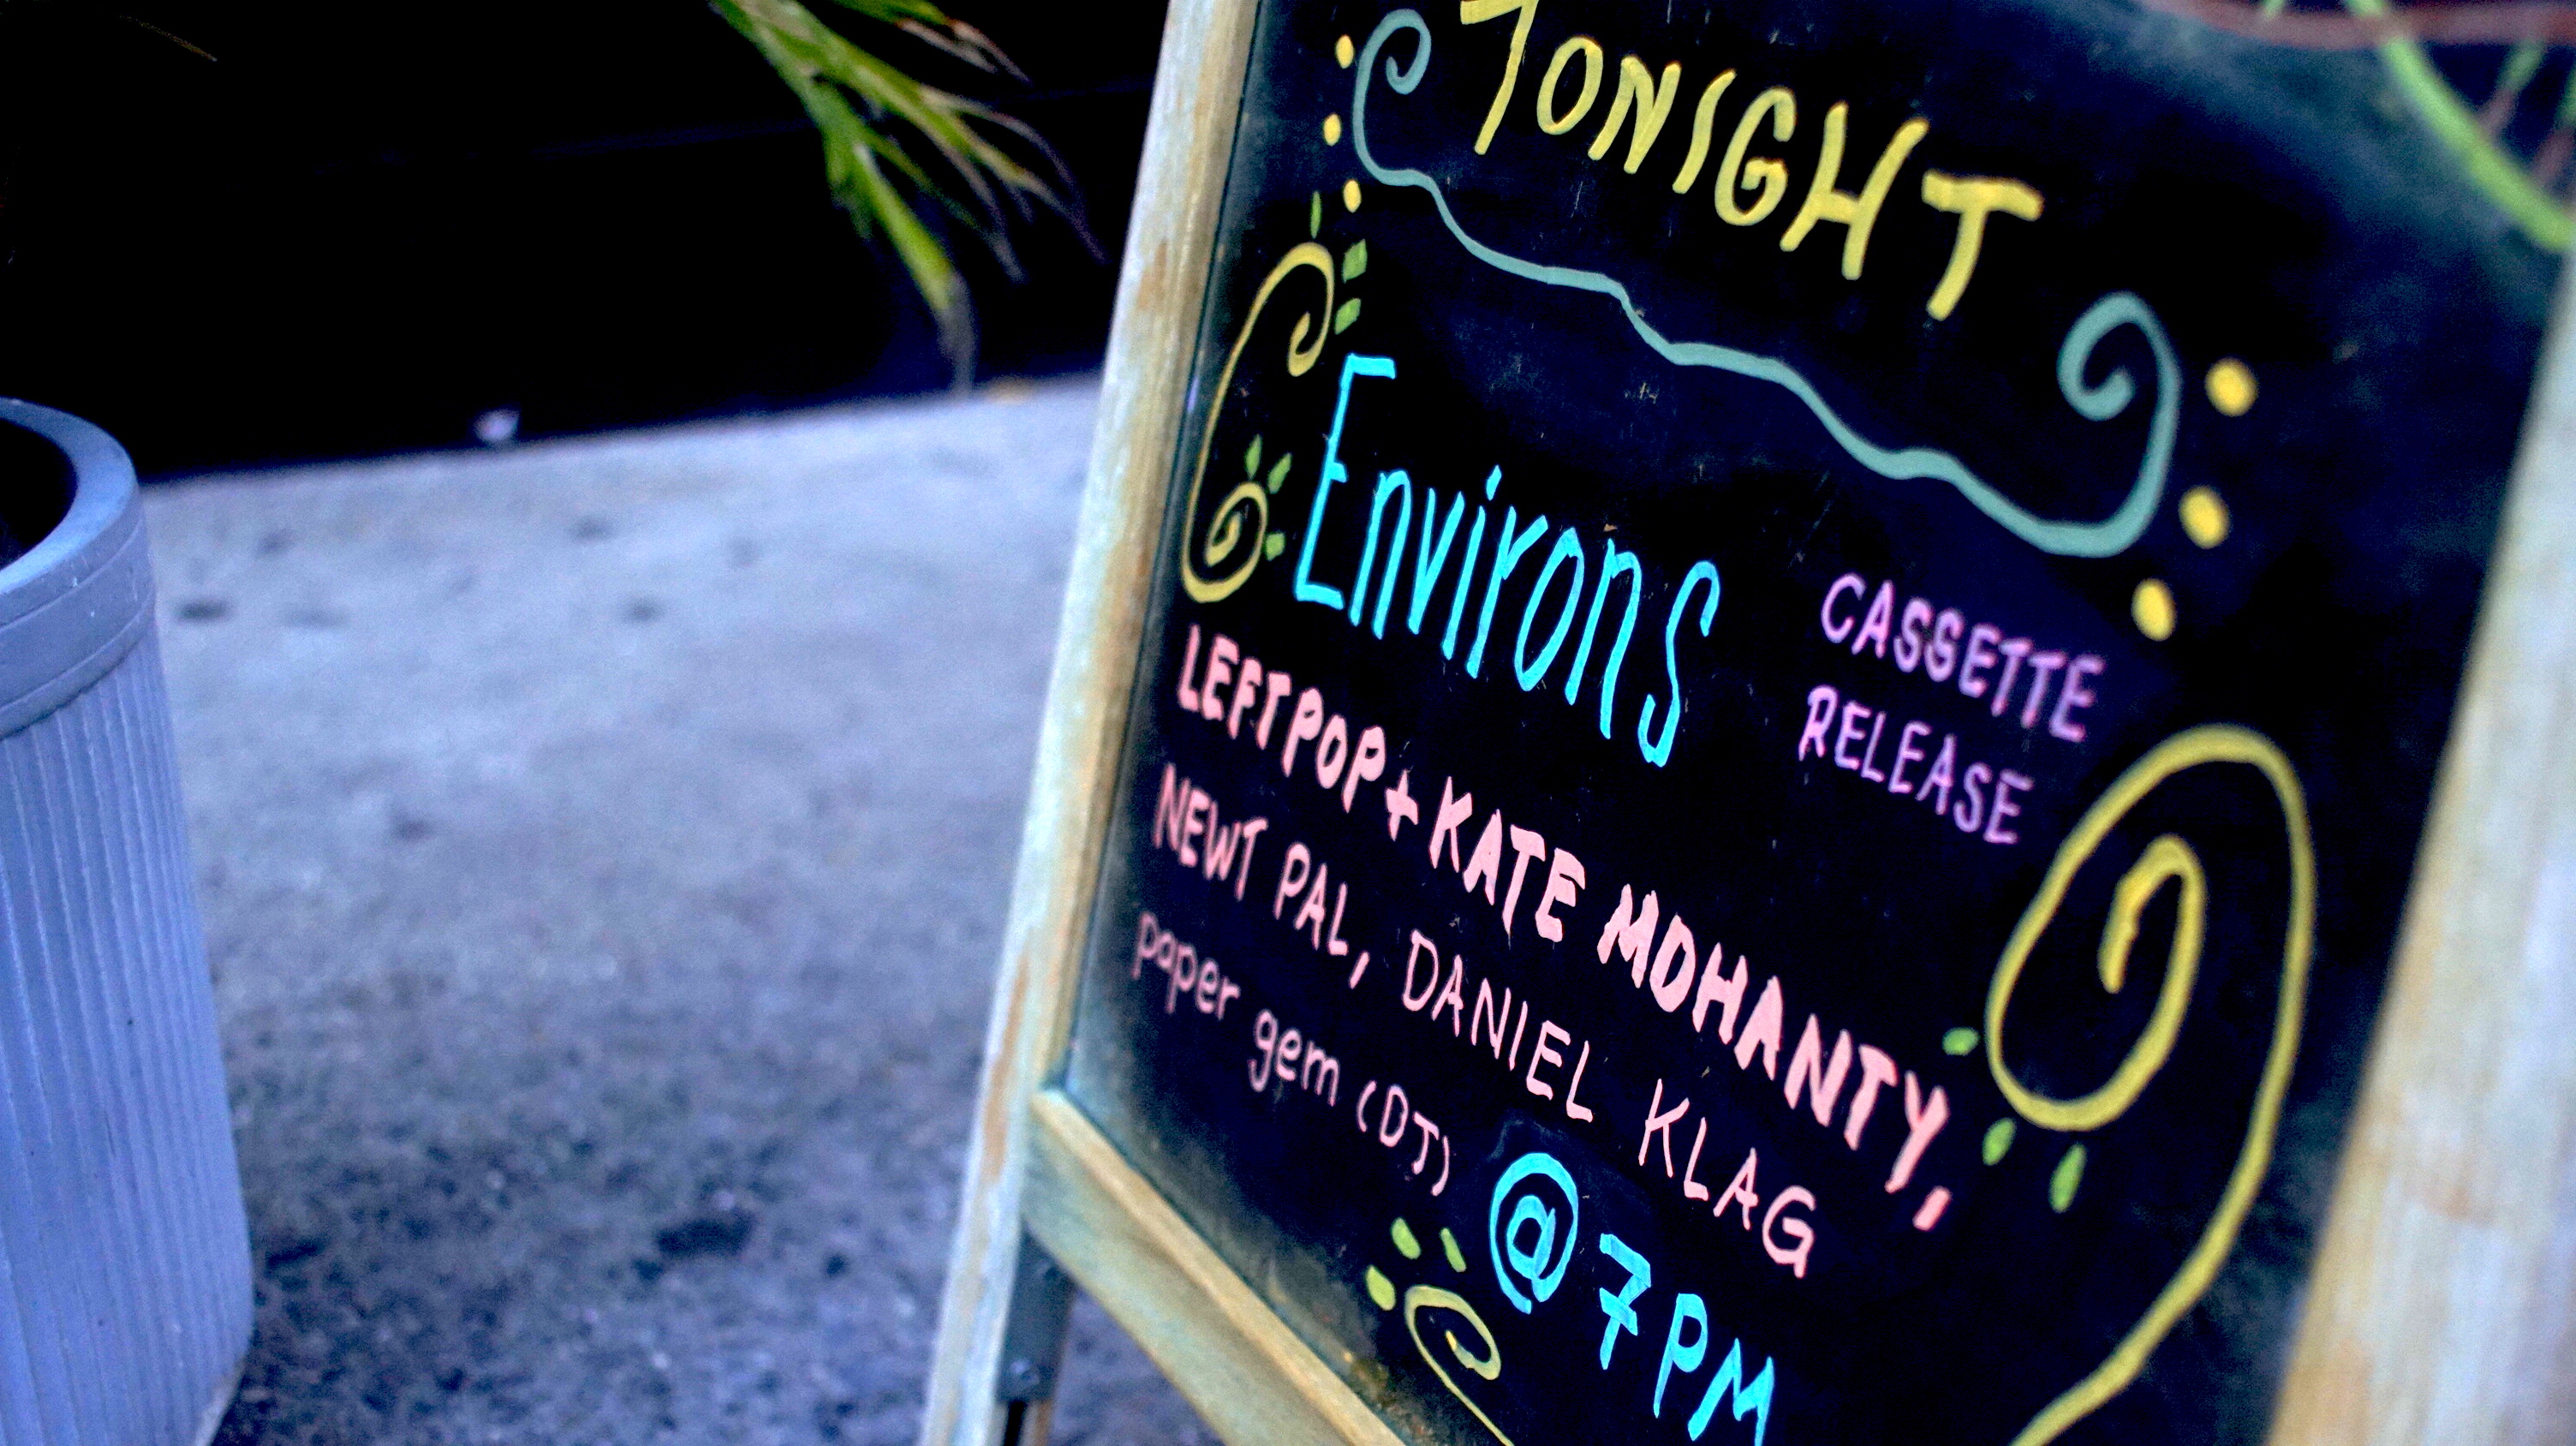 TONIGHT
Environs
CASSETTE
RELEASE
LEFTPOP + KATE MOHANTY,
NEWT PAL, DANIEL KLAG
paper gem (DJ)
@ 7PM